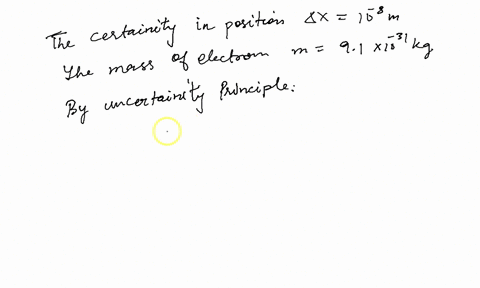 The certainity in position Δx = 10⁻⁸ m
The mass of electrom m = 9.1 × 10⁻³¹ kg
By uncertainity Principle: